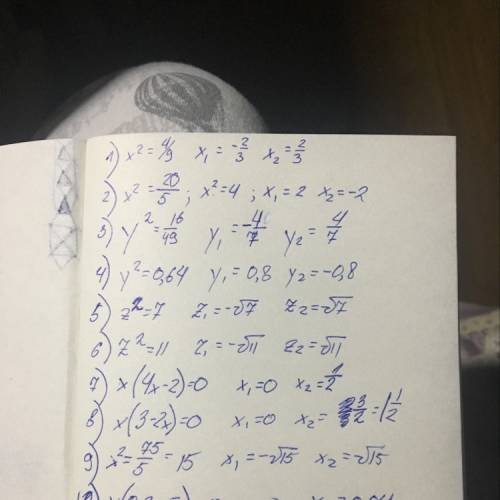 1) x²=4/9 x₁=-2/3 x₂=2/3
2) x²=20/5; x²=4; x₁=2 x₂=-2
3) y²=16/49 y₁=-4/7 y₂=4/7
4) y²=0,64 y₁=0,8 y₂=-0,8
5) z²=7 z₁=-√7 z₂=√7
6) z²=11 z₁=-√11 z₂=√11
7) x(4x-2)=0 x₁=0 x₂=1/2
8) x(3-2x)=0 x₁=0 x₂=3/2=1 1/2
9) x²=75/5=15 x₁=-√15 x₂=√15